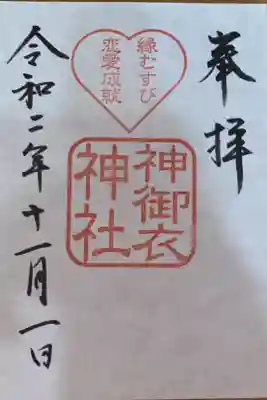 奉拝
縁むすび
恋愛成就
神御衣
神社
令和二年十一月一日